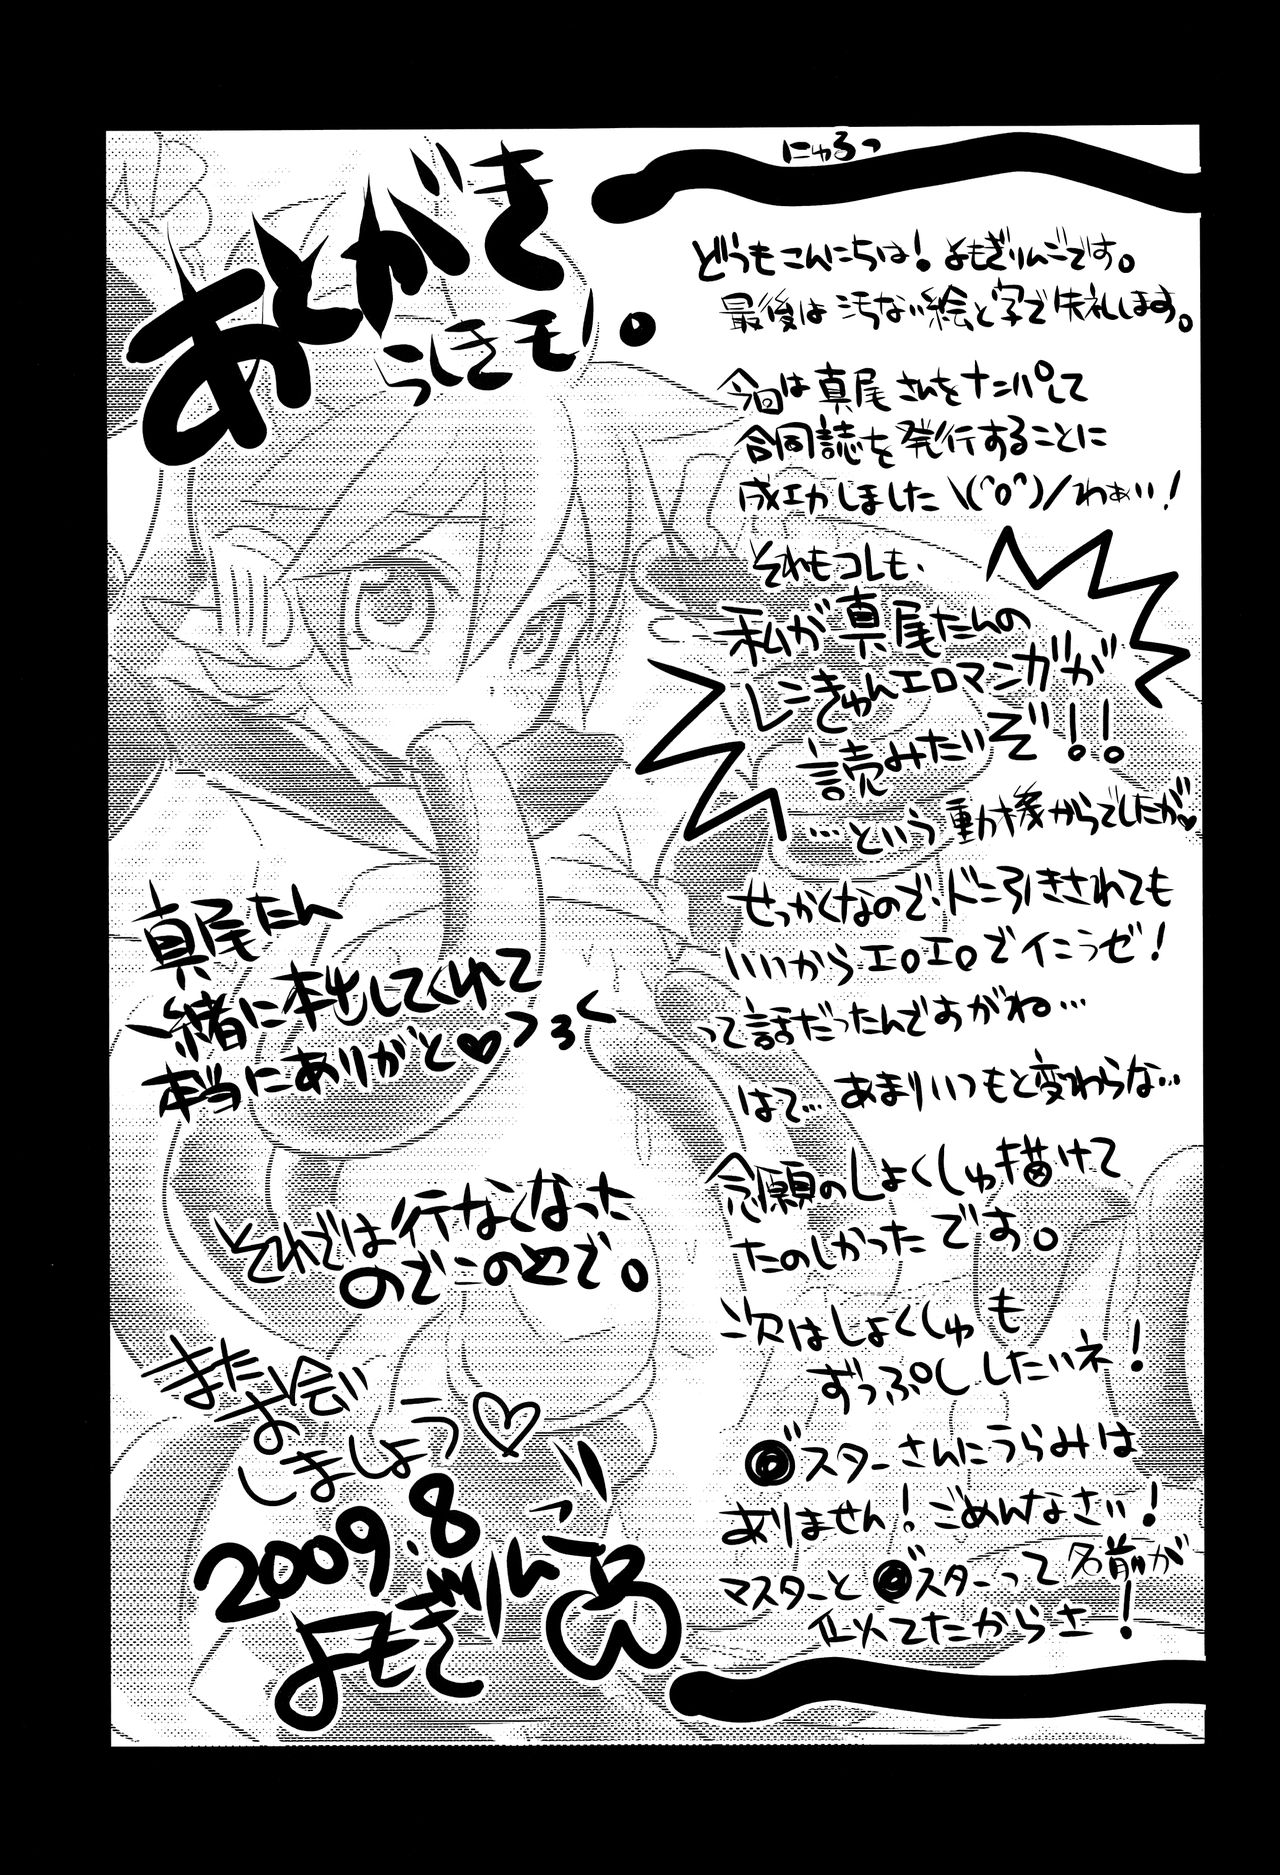 あとがき
らしきモノ。
にゅるっ
どうもこんにちは！よもぎりんごです。
最後は汚ない絵と字で失礼します。
今回は真尾さんをナンパして
合同誌を発行することに
成功しました\(^o^)/わぁい！
それもコレも、
私が真尾たんの
レニきゅんエロマンガが
読みたいぞ!!
…という動機からでしたが♥
せっかくなので、ドン引きされても
いいからエロエロでイこうぜ！
って話だったんですがね…
はて…あまりいつもと変わらな…
念願のしょくしゅ描けて
たのしかったです。
次はしょくしゅも
ずっぷししたいネ！
◎゛スターさんにうらみは
ありません！ごめんなさい！
マスターと◎゛スターって名前が
似てたからさ！
真尾たん
一緒に本出してくれて
本当にありがと♥つろく
それでは行なくなった
のでこのへんで。
また
お会い
しましょう♡
2009.8
よもぎりんご